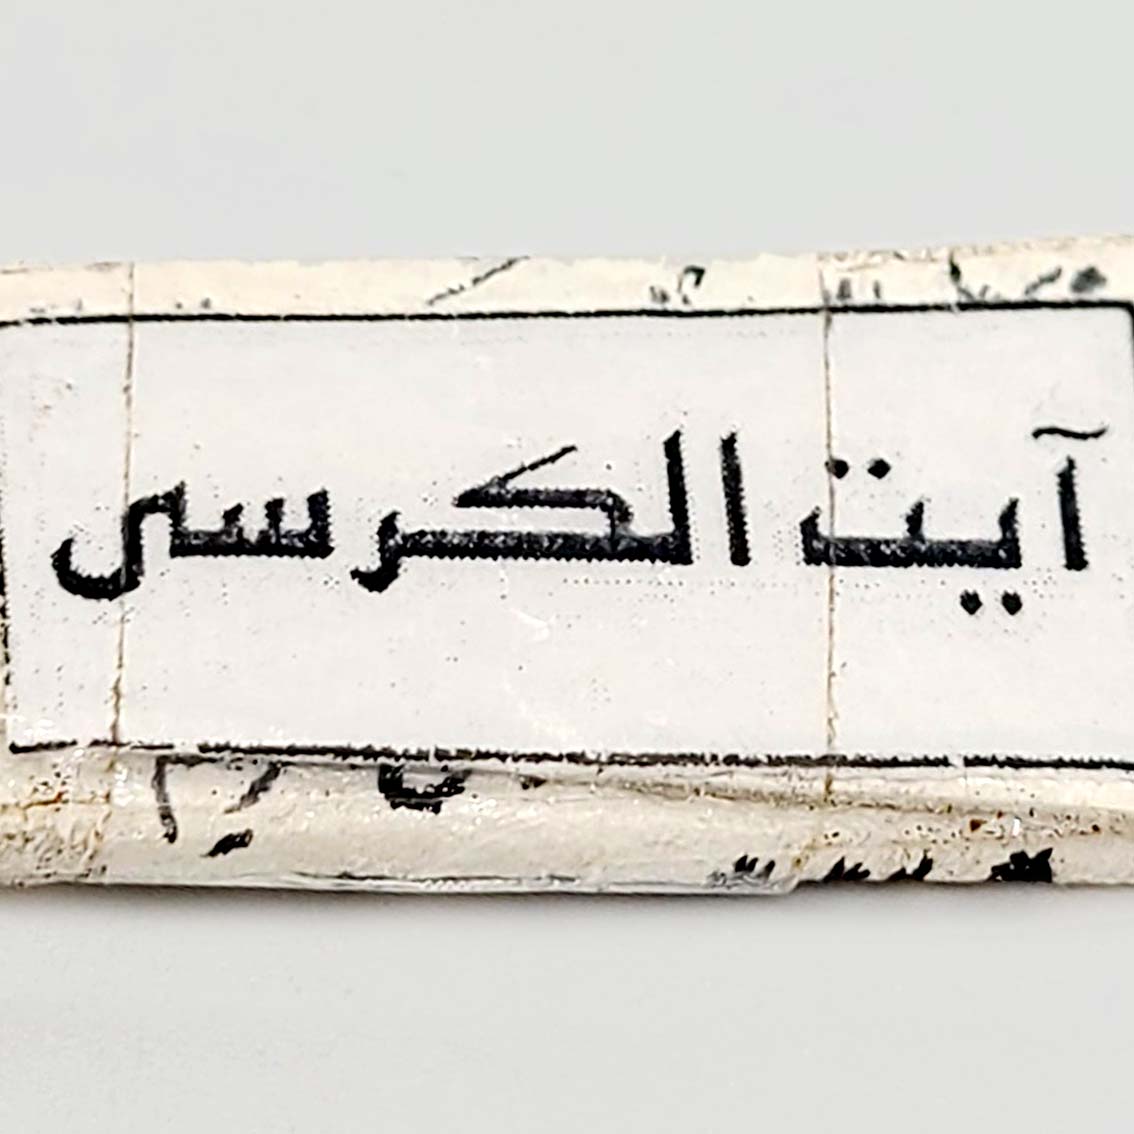 آیت الکرسی